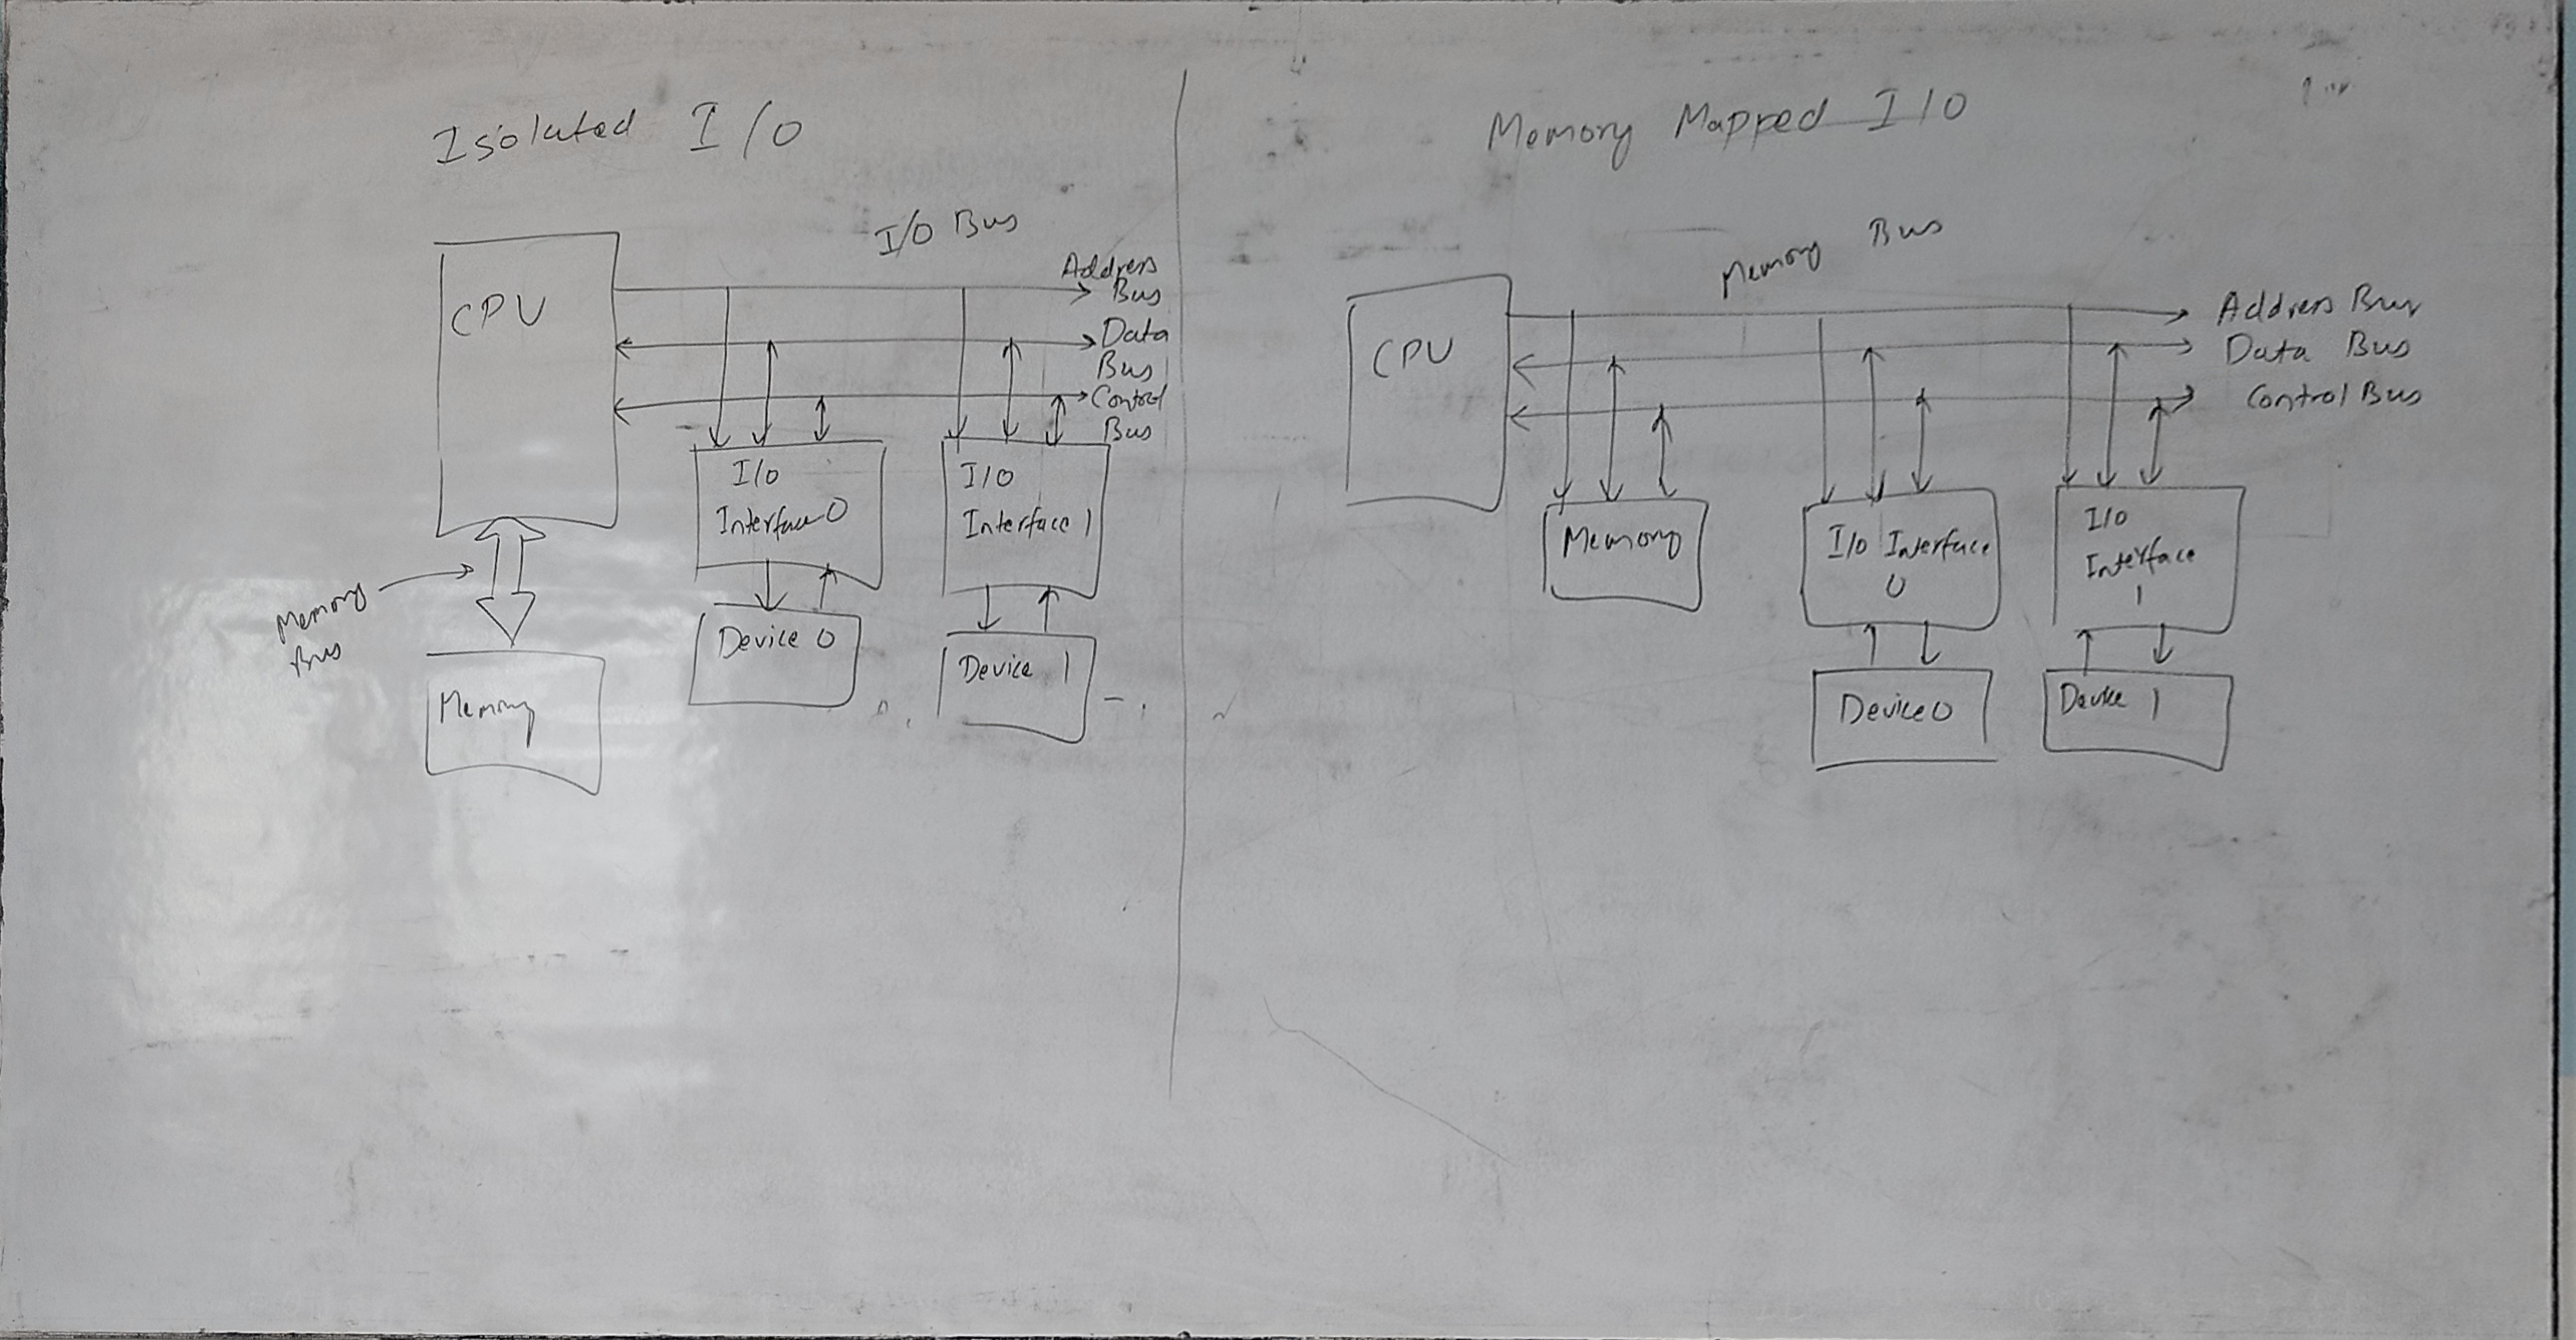 Isolated I/O
I/O Bus
Address
Bus
CPU
Data
Bus
Control
Bus
I/O
Interface 0
I/O
Interface 1
Memory
Bus
Device 0
Device 1
Memory
Memory Mapped I/O
Memory Bus
Address Bus
CPU
Data Bus
Control Bus
Memory
I/O Interface
0
I/O
Interface
1
Device 0
Device 1